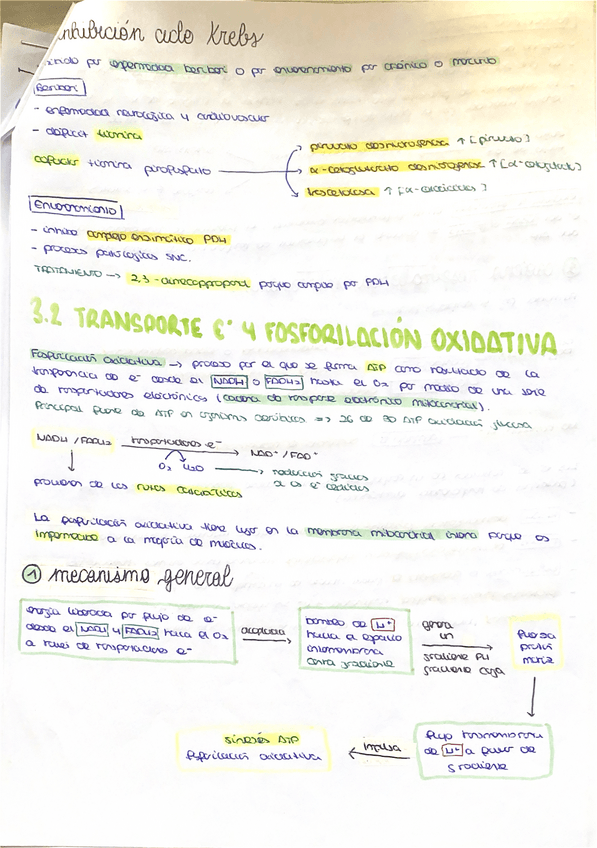 inhibición ciclo Krebs
por enfermedad beriberi o por envenenamiento por arsénico o mercurio
Beriberi
- enfermedad neurológica y cardiovascular
- déficit tiamina
cofactor tiamina pirofosfato
piruvato deshidrogenasa ↑ [piruvato]
α-cetoglutarato deshidrogenasa ↑ [α-cetoglutarato]
trascetolasa ↑
Envenenamiento
- inhibe complejo enzimático PDH
- procesos patológicos SNC.
TRATAMIENTO → 2,3-dimercaptopropanol porque compite por PDH
3.2 TRANSPORTE e- Y FOSFORILACIÓN OXIDATIVA
Fosforilación oxidativa → proceso por el que se forma ATP como resultado de la
transferencia de e- desde el NADH o FADH2 hasta el O2 por medio de una serie
de transportadores electrónicos (cadena de transporte electrónico mitocondrial).
Principal fuente de ATP en organismos aeróbicos => 26 de 30 ATP oxidación glucosa
NADH / FADH2 transportadores e- → NAD+ / FAD+
O2 H2O → reducción gracias
a los e- cedidos
procedentes de las rutas catabólicas
La fosforilación oxidativa tiene lugar en la membrana mitocondrial interna porque es
impermeable a la mayoría de moléculas.
① mecanismo general
energía liberada por flujo de e-
desde el NADH y FADH2 hacia el O2
a través de transportadores e-
acoplada
bombeo de H+
hacia el espacio
intermembrana
contra gradiente
genera
un
gradiente pH
gradiente carga
fuerza
protón
motriz
flujo transmembrana
de H+ a favor de
gradiente
impulsa
síntesis ATP
fosforilación oxidativa